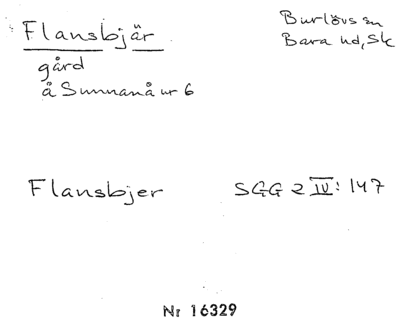 Flansbjär
Burlövs sn
Bara hd, Sk
gård
å Sunnanå nr 6
Flansbjer
SGG 2 IV: 147
Nr 16329